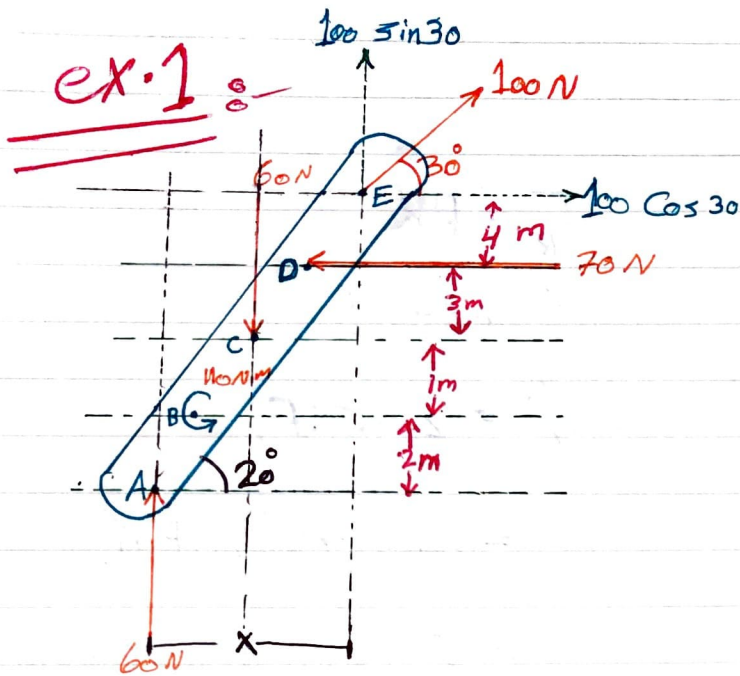 100 sin30
ex.1 :-
100 N
60N
30°
E
100 Cos 30
4 m
D
70 N
3m
C
110N.m
1m
B
2m
A
20°
X
60N